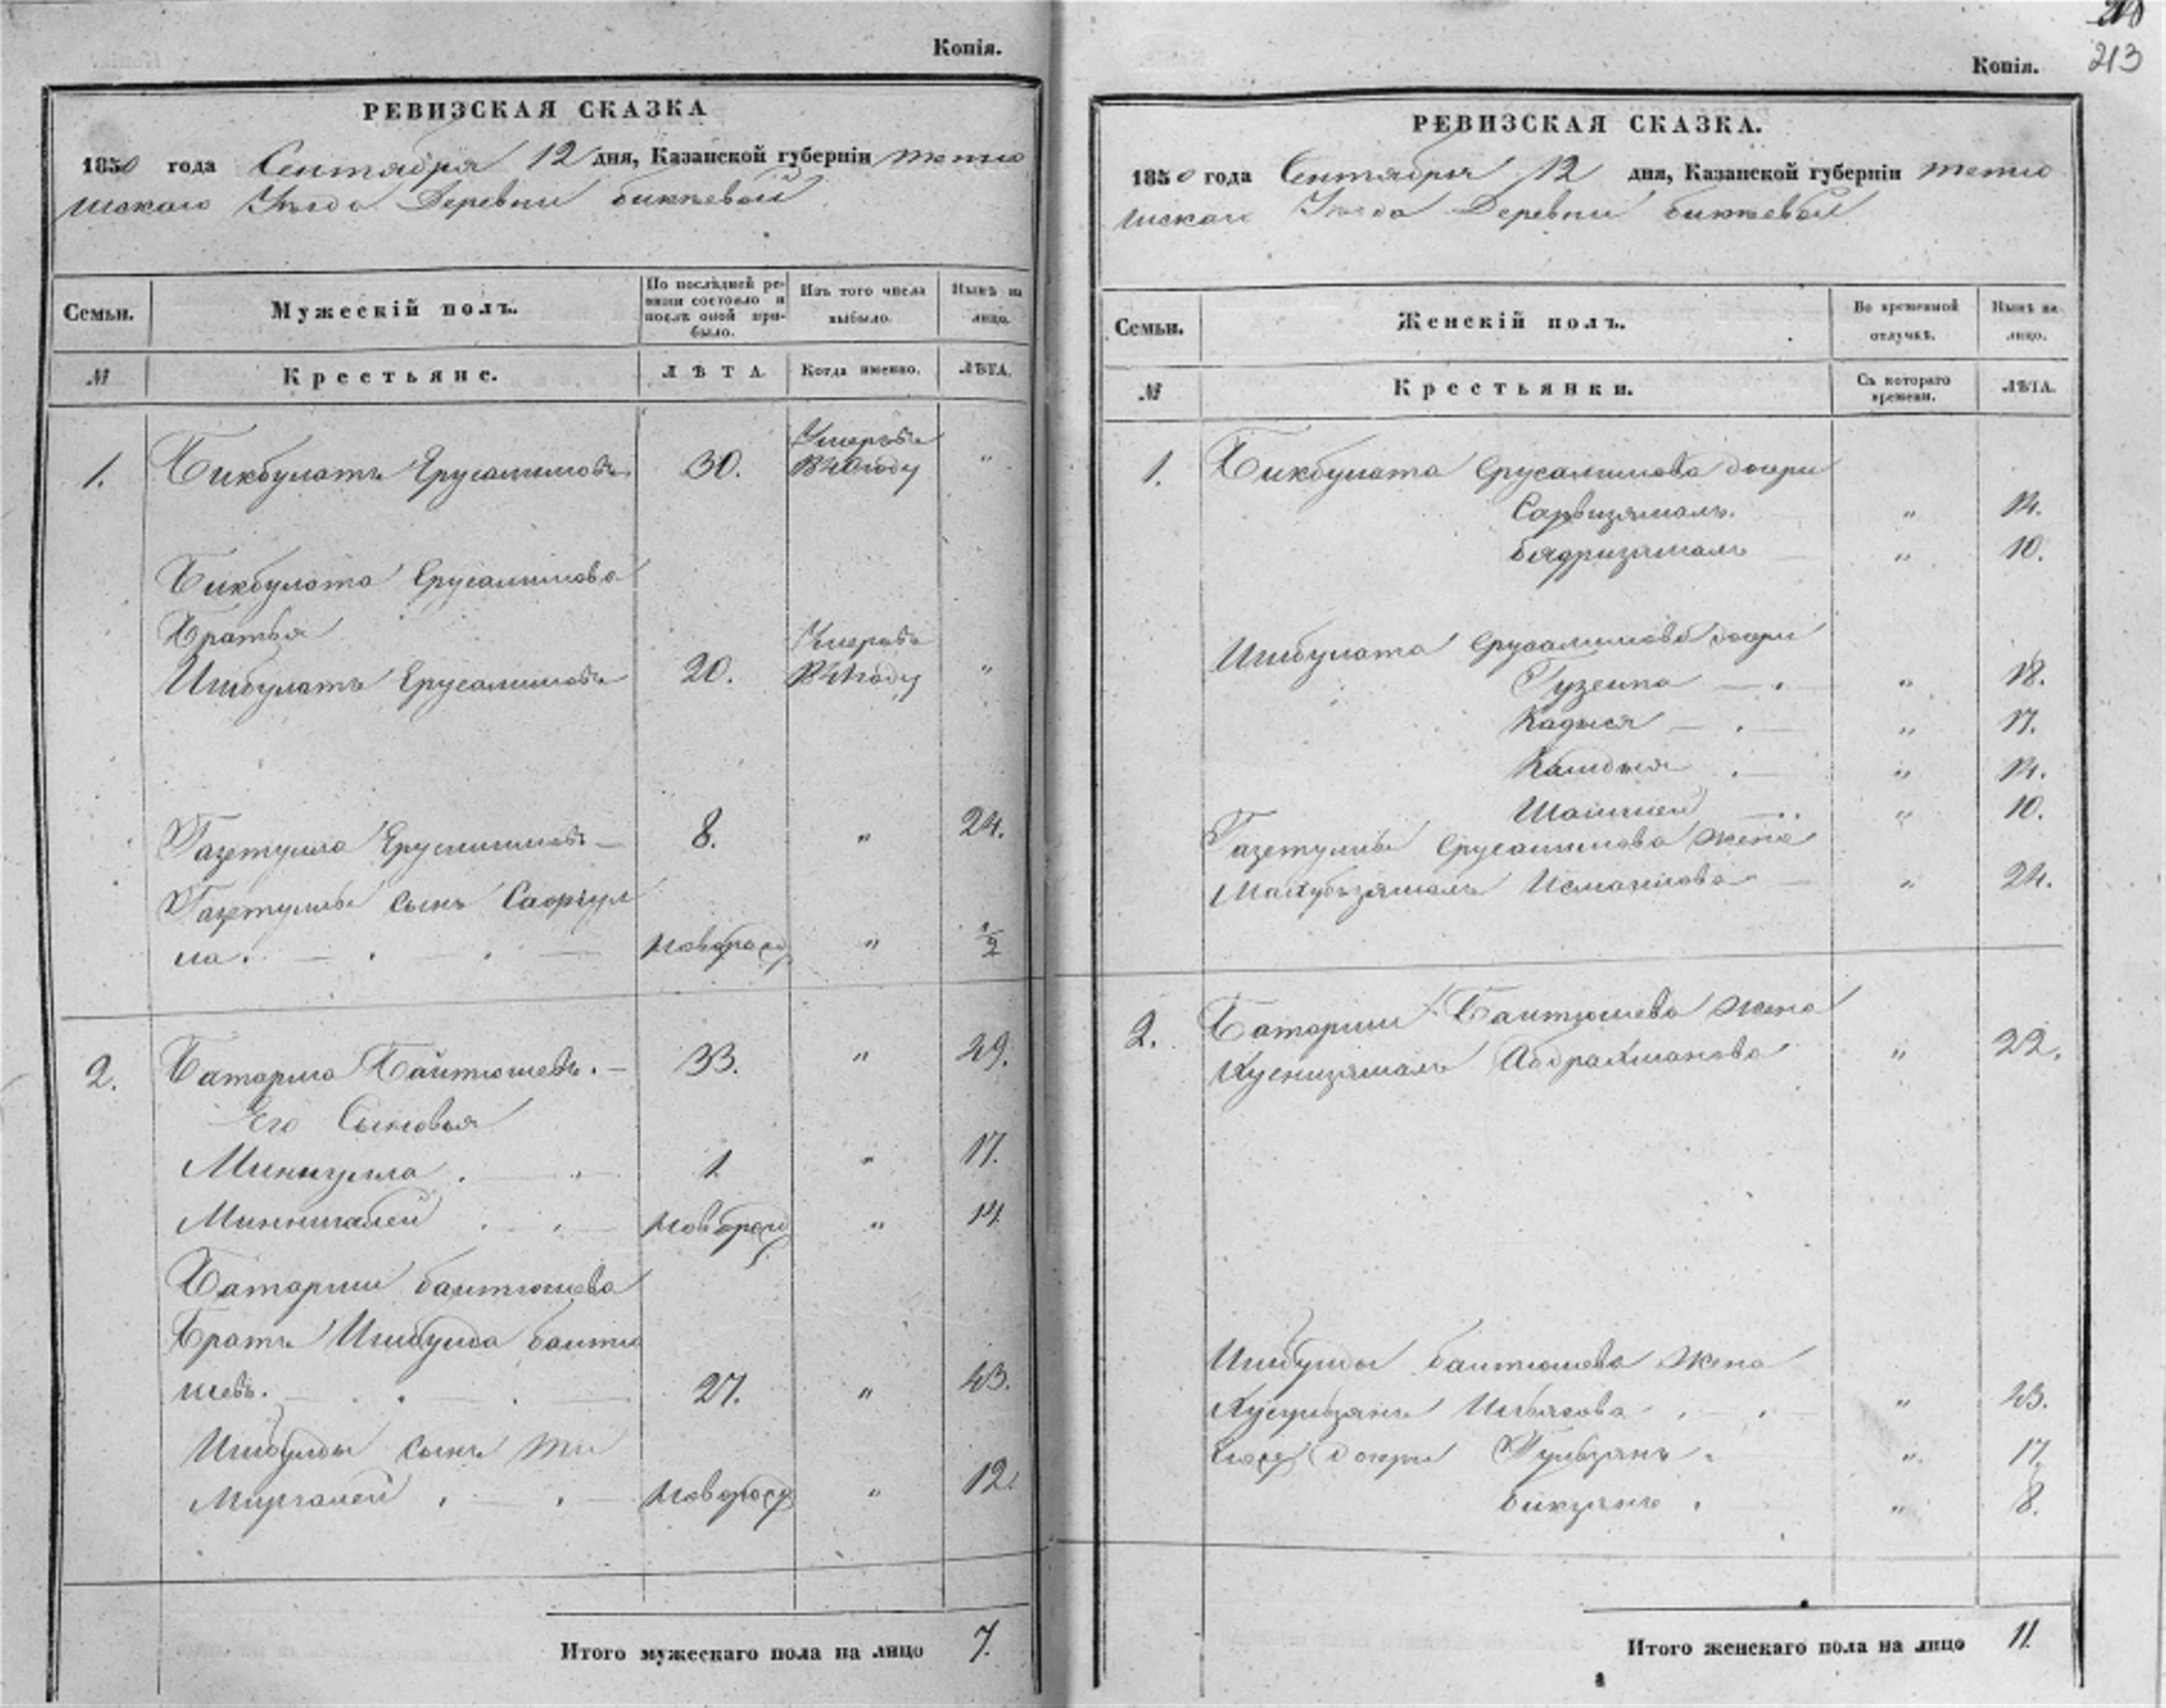 Копія.
РЕВИЗСКАЯ СКАЗКА
1850 года Сентября 12 дня, Казанской губерніи тетю
шскаго Уѣзда Деревни бикѣевой
Семьи.
Мужескій полъ.
По послѣдней ре-
визіи состояло и
послѣ оной при-
было.
Изъ того числа
выбыло.
Нынѣ на
лицо.
№
Крестьяне.
ЛѢТА.
Когда именно.
ЛѢТА.
1. Бикбулатъ Ерусалимовъ 30. Умеръ въ "
Бикбулата Ерусалимова
Братья
Ишбулатъ Ерусалимовъ 20. Умеръ въ "
Газетулла Ерусалимовъ 8. " 24.
Газетуллы сынъ
ла. новорожд " 1/2
2. Батарша Байтюшевъ. 33. " 49.
Его Сыновья
Миннулла 1 " 17.
Миннигалей новорожд " 14
Батарши баитюшева
Братъ Ишбулда баитю
шевъ. 27. " 43.
Ишбулды сынъ Ми
новорожд " 12.
Итого мужескаго пола на лицо 7.
213
Копія.
РЕВИЗСКАЯ СКАЗКА.
1850 года Сентября 12 дня, Казанской губерніи тетю
шскаго Уѣзда Деревни бикѣевой
Семьи.
Женскій полъ.
Во временной
отлучкѣ.
Нынѣ на
лицо.
№
Крестьянки.
Съ котораго
времени.
ЛѢТА.
1. Бикбулата Ерусалимова дочери
Сарвизямалъ. " 14.
бядризямалъ " 10.
Ишбулата Ерусалимова дочери
" 18.
Кадыся " 17.
" 14.
" 10.
Газетуллы Ерусалимова жена
Махубзямалъ Исмаилова " 24.
2. Батарши Баитюшева жена
Хуснизямалъ Абдрахманова " 22.
Ишбулды баитюшева жена
Ильясова " 43.
дочери Гульзянъ " 17.
бикзянъ " 8.
Итого женскаго пола на лицо 11.